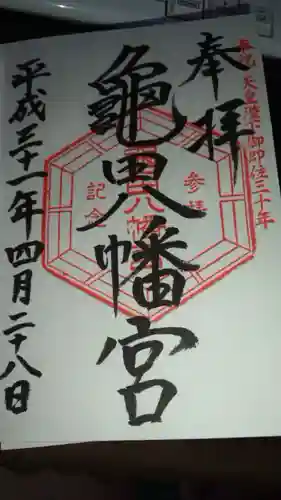 奉祝 天皇陛下御即位三十年
奉拝
龜甲八幡宮
参拝
記念
平成三十一年四月二十八日